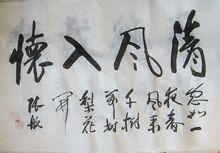 清风入怀
忽如一
夜春
风来
千树
万树
梨花
开